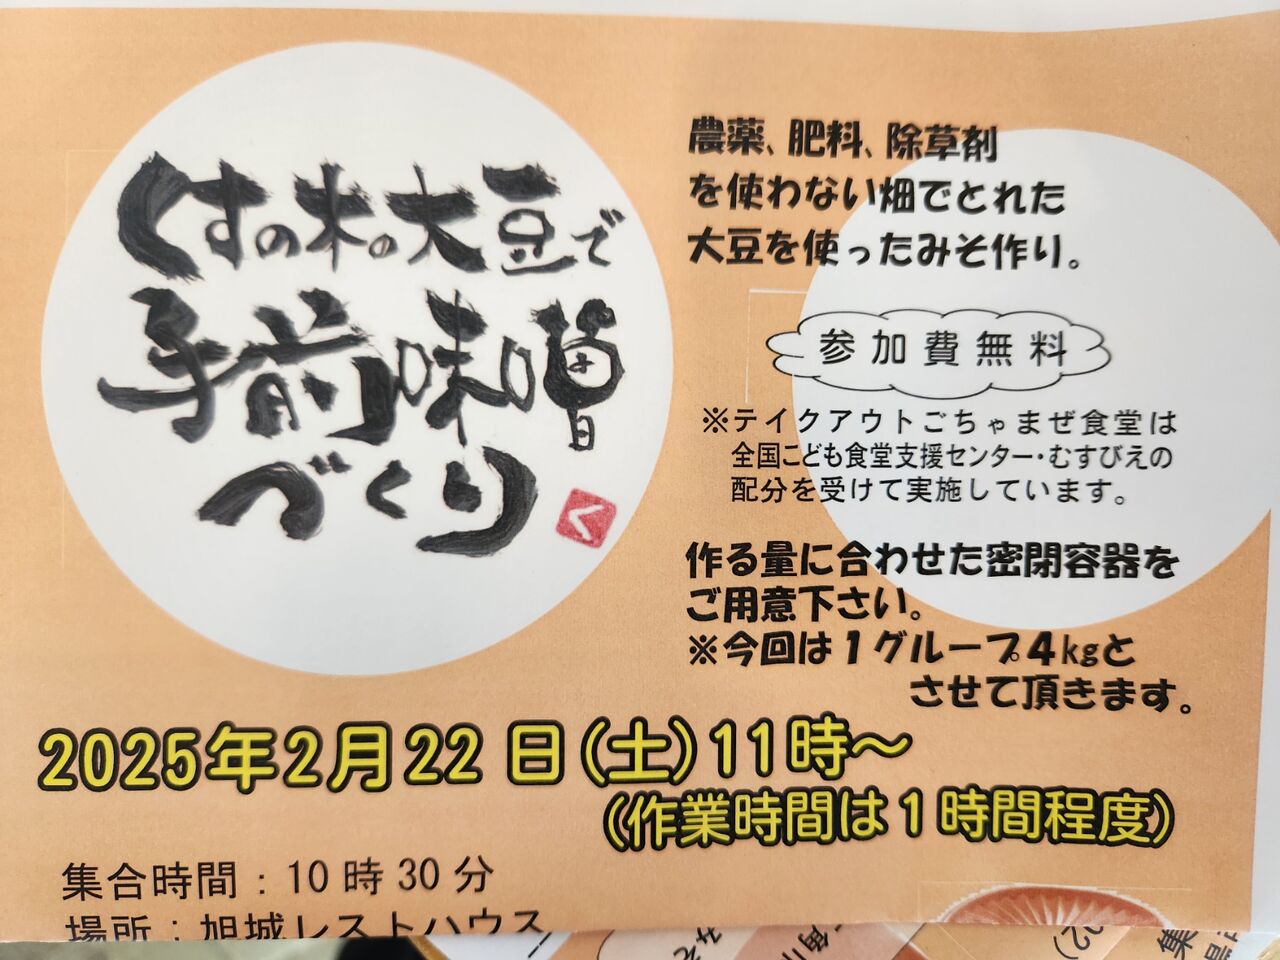 くすの木の大豆で
手前味噌
づくり
く
農薬、肥料、除草剤
を使わない畑でとれた
大豆を使ったみそ作り。
参加費無料
※テイクアウトごちゃまぜ食堂は
全国こども食堂支援センター・むすびえの
配分を受けて実施しています。
作る量に合わせた密閉容器を
ご用意下さい。
※今回は1グループ4kgと
させて頂きます。
2025年2月22日(土)11時～
(作業時間は1時間程度)
集合時間：10時30分
場所：旭城レストハウス